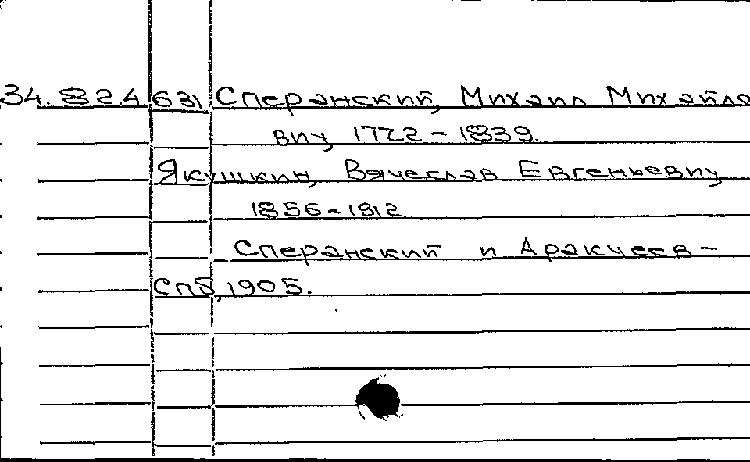 34.82.4 631 Сперанский, Михаил Михайло
вич 1772-1839.
Якушкин, Вячеслав Евгеньевич
1856-1912
Сперанский и Аракчеев-
Спб, 1905.